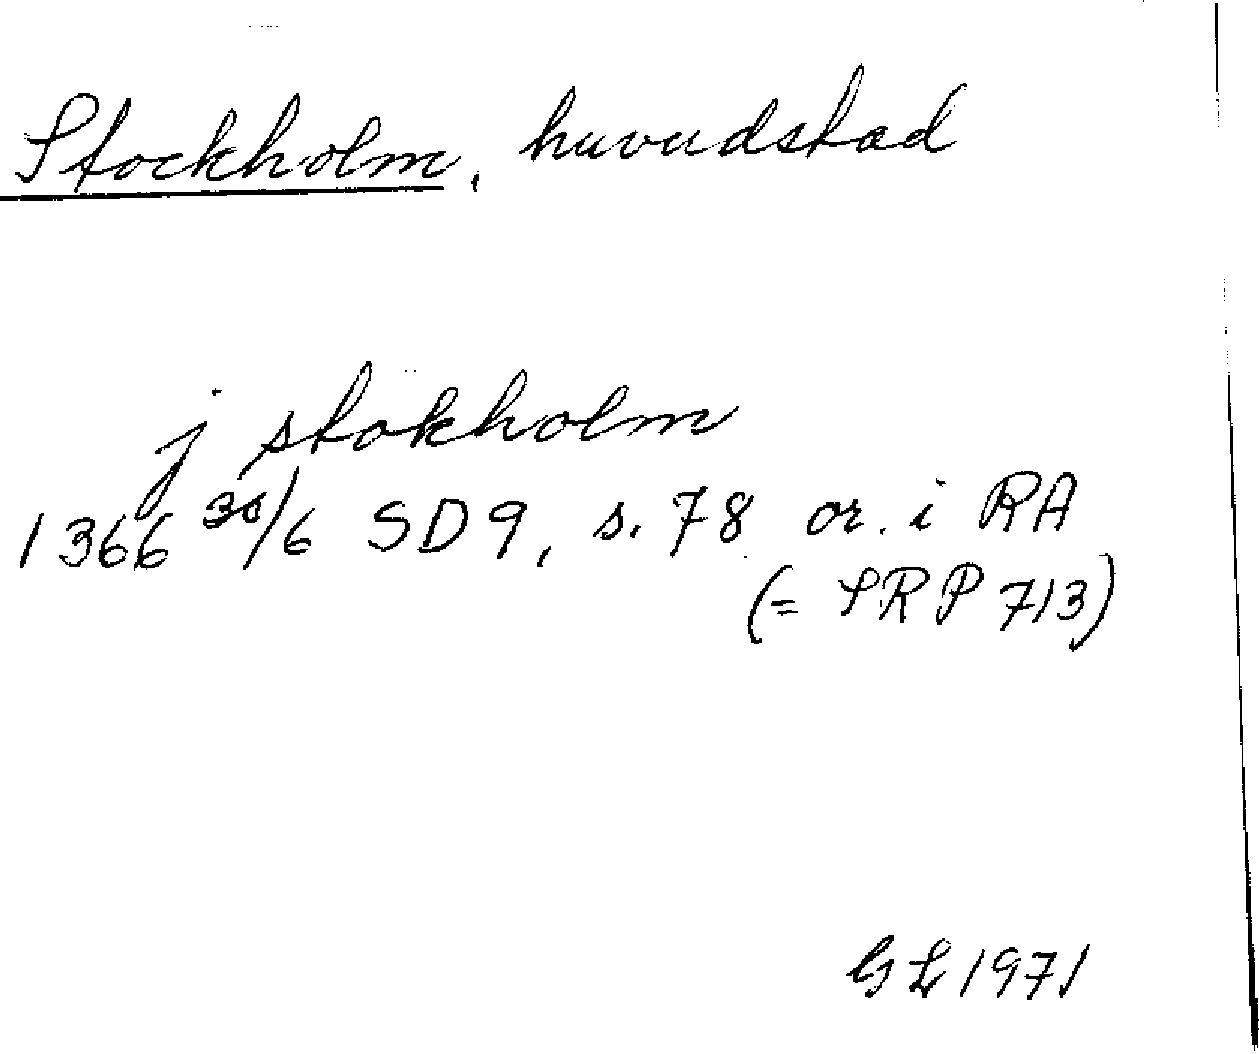 Stockholm, huvudstad
j stokholm
1366 30/6 SD9, s. 78 or. i RA
(= SRP 713)
GL 1971